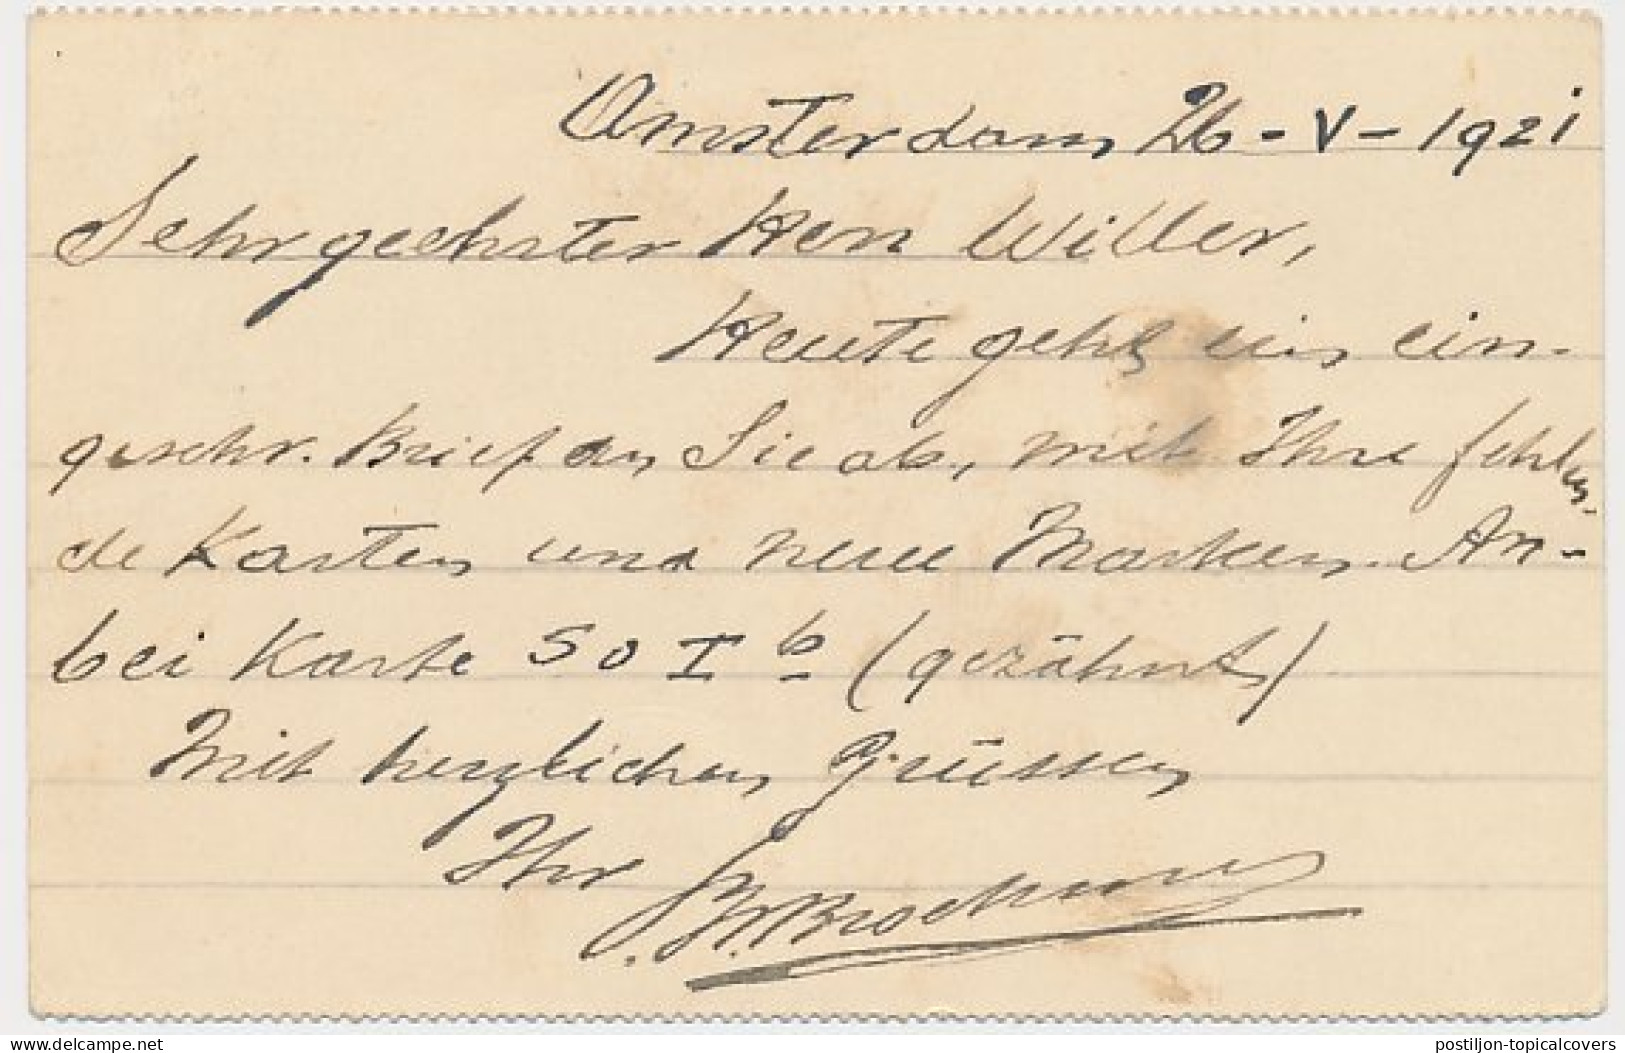 Amsterdam 26-V-1921
Sehr geehrter Herr Willer,
Heute geht ein ein-
geschr. Brief an Sie ab, mit Ihre fehlen-
de Karten und neue Marken. An-
bei Karte 50 I b (gezähnt)
Mit herzlichen Grüssen
Ihr
www.delcampe.net
postiljon-topicalcovers